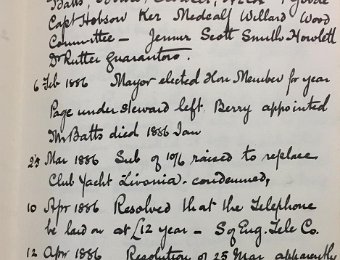 Batts,
Capt Hobson Ker Medcalf Willard Wood
Committee – Jenner Scott Smith Howlett
Dr Rutter guarantors.
6 Feb 1886 Mayor elected Hon Member for year
Page under Steward left Berry appointed
Mr Batts died 1886 Jan
25 Mar 1886 Sub of 10/6 raised to replace
Club Yacht Livonia. condemned,
10 Apr 1886 Resolved that the Telephone
be laid on at £12 year – So Eng. Tele Co.
12 Apr 1886 Resolution of 25 Mar apparently